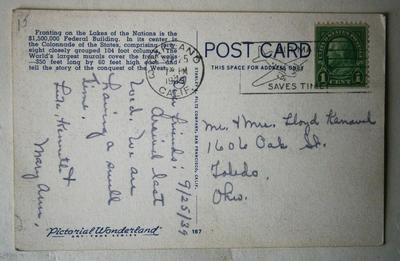 15
Fronting on the Lakes of the Nations is the
$1,500,000 Federal Building. In its center is
the Colonnade of the States, comprising forty-
eight closely grouped 104 foot columns. The
World's largest murals cover the front were
—350 feet long by 60 feet high each—and
tell the story of the conquest of the West.
POST CARD
THIS SPACE FOR ADDRESS ONLY
CALIF.
SAVES TIME
UNITED STATES POSTAGE
1 CENT 1
9/25/39
Dear friends:
Arrived last
Wed. We are
having a swell
time.
Lois, Kenneth &
Mary Ann.
Mr. & Mrs. Lloyd
1606 Oak St.
Toledo,
Ohio.
Pictorial Wonderland
ART TONE SERIES
187